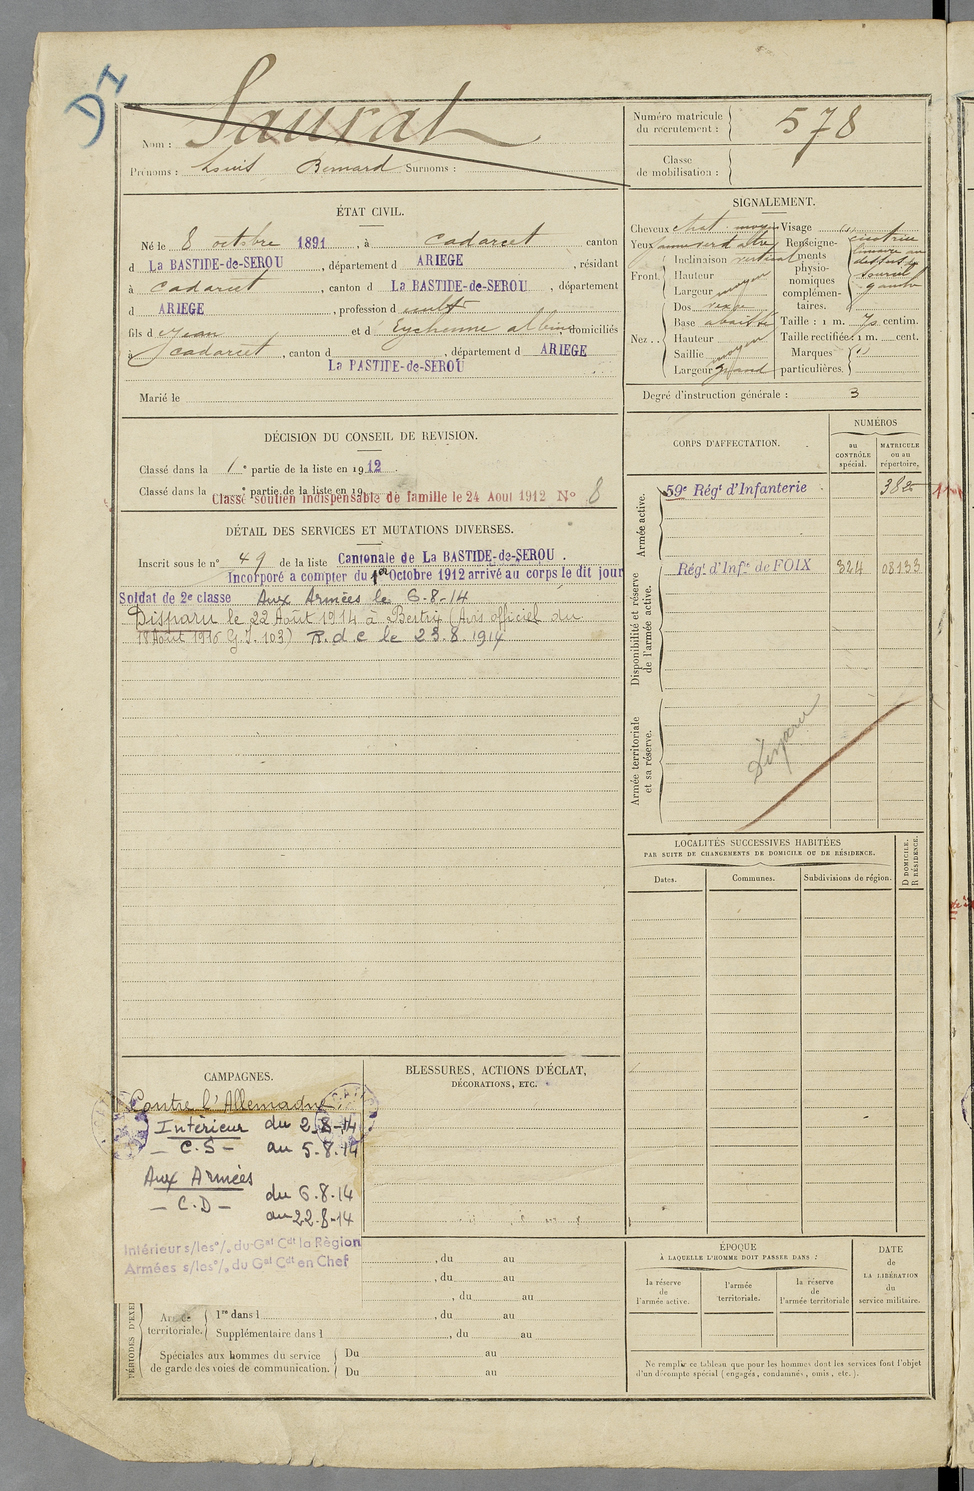 DI
Nom : Saurat
Prénoms : Louis Bernard Surnoms :
Numéro matricule du recrutement : 578
Classe de mobilisation :
ÉTAT CIVIL.
Né le 8 octobre 1891, à Cadarcet canton
d La BASTIDE-de-SEROU, département d ARIEGE, résidant
à Cadarcet, canton d La BASTIDE-de-SEROU, département
d ARIEGE, profession d cultr
fils d Jean et d' Eychenne albine domiciliés
à Cadarcet, canton d , département d ARIEGE
La BASTIDE-de-SEROU
Marié le
SIGNALEMENT.
Cheveux chat. moyen Visage "
Yeux jaune verdatre
Inclinaison vertical
Front. Hauteur
Largeur moyen
Renseignements physionomiques complémentaires. cicatrice
sourcil
gauche
Dos
Nez .. Base
Hauteur
Saillie moyen
Largeur grand
Taille : 1 m. 70 centim.
Taille rectifiée : 1 m. cent.
Marques particulières. "
Degré d'instruction générale : 3
DÉCISION DU CONSEIL DE REVISION.
Classé dans la 1e partie de la liste en 1912.
Classé dans la e partie de la liste en 19
Classé soutien indispensable de famille le 24 Aout 1912 No 8
DÉTAIL DES SERVICES ET MUTATIONS DIVERSES.
Inscrit sous le n° 49 de la liste Cantonale de La BASTIDE-de-SEROU.
Incorporé a compter du 1er Octobre 1912 arrivé au corps le dit jour
Soldat de 2e classe Aux Armées le 6-8-14
Disparu le 22 Août 1914 à Bertrix (Avis officiel du
18 Août 1916 G.J. 103) R.d.c le 23.8.1914
CORPS D'AFFECTATION.
NUMÉROS
au CONTRÔLE spécial.
MATRICULE ou au répertoire.
Armée active.
59e Régt d'Infanterie 382
Disponibilité et réserve de l'armée active.
Régt d'Infie de FOIX 324 08133
Armée territoriale et sa réserve.
Disparu
LOCALITÉS SUCCESSIVES HABITÉES
PAR SUITE DE CHANGEMENTS DE DOMICILE OU DE RÉSIDENCE.
Dates.
Communes.
Subdivisions de région.
D DOMICILE.
R RÉSIDENCE.
CAMPAGNES.
Contre l'Allemagne
Intérieur du 2.8-14
– C.S – au 5.8.14
Aux Armées
– C.D – du 6.8.14
au 22.8-14
Intérieur s/les o/. du Gal Cdt la Région
Armées s/les o/. du Gal Cdt en Chef
BLESSURES, ACTIONS D'ÉCLAT,
DÉCORATIONS, ETC.
, du au
, du au
, du au
Armée territoriale. 1re dans l , du au
Supplémentaire dans l , du au
Spéciales aux hommes du service de garde des voies de communication. Du au
Du au
ÉPOQUE
À LAQUELLE L'HOMME DOIT PASSER DANS :
la réserve de l'armée active.
l'armée territoriale.
la réserve de l'armée territoriale
DATE
de
LA LIBÉRATION
du
service militaire.
Ne remplir ce tableau que pour les hommes dont les services font l'objet
d'un décompte spécial (engagés, condamnés, omis, etc.).